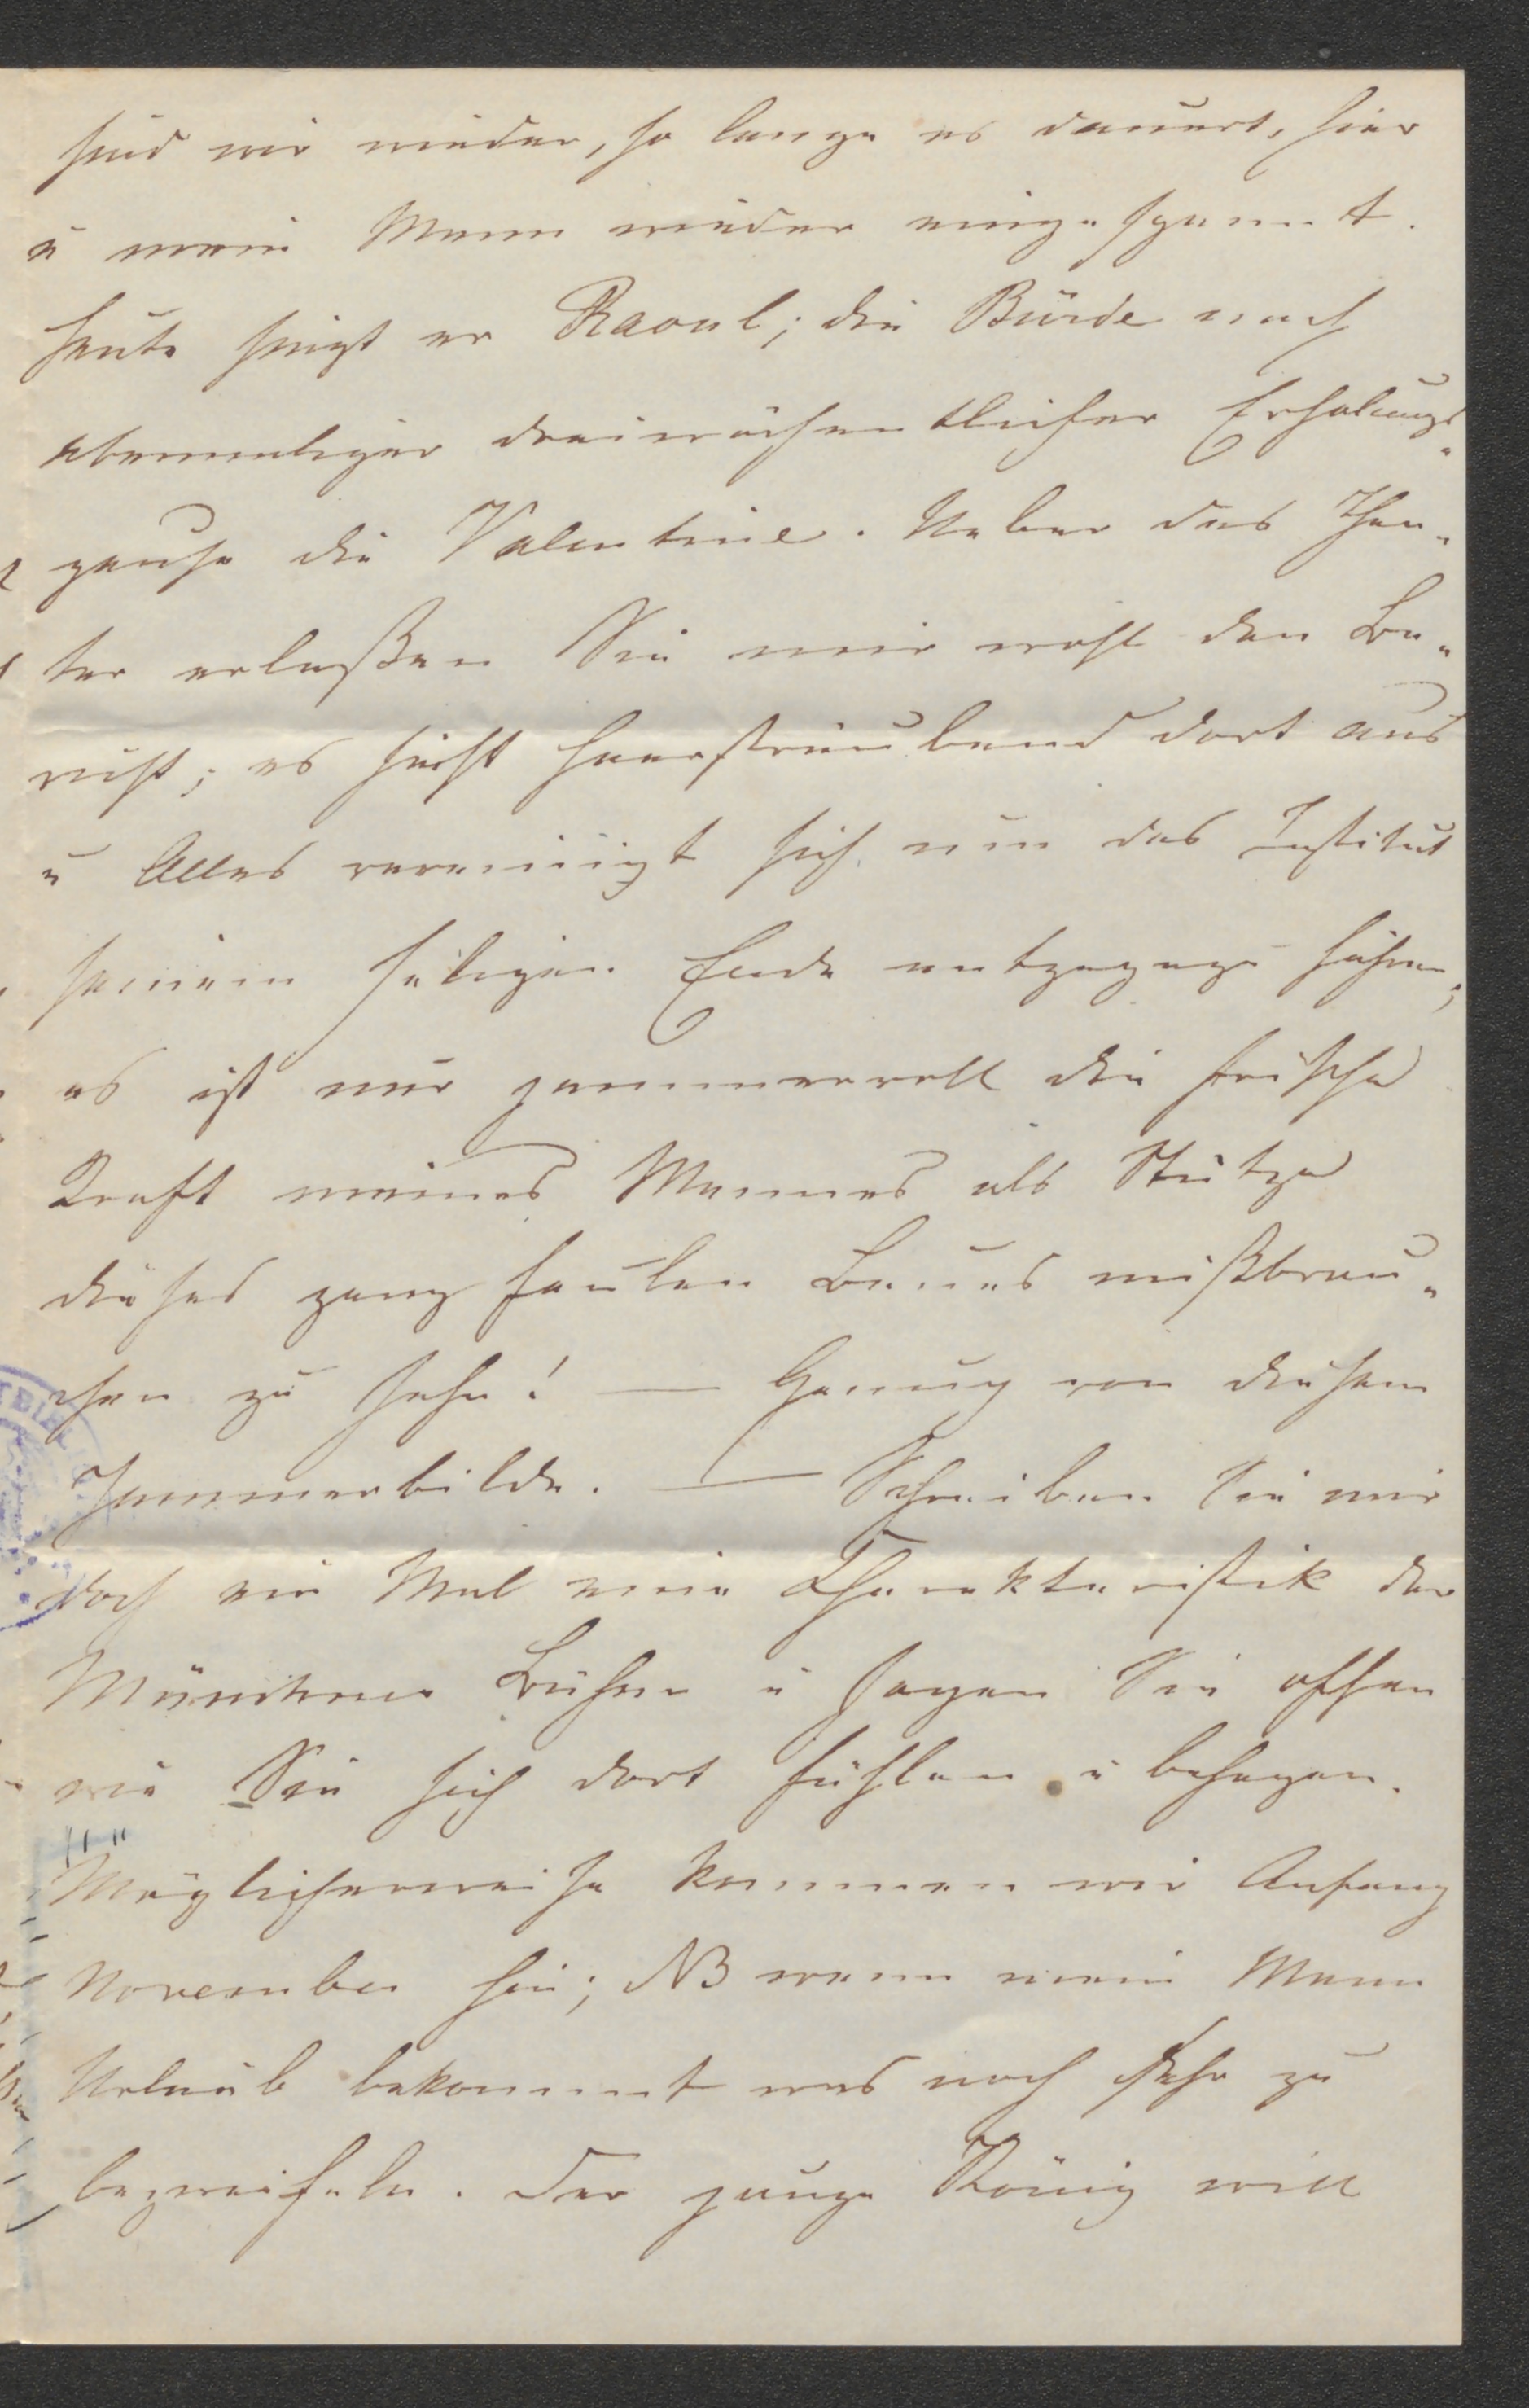 sind wir wieder, so lange es dauert, hier
u mein Mann wieder eingespannt.
Heute singt er Raoul; die Bürde nach
abermaliger dreiwöchentlicher Erholungs-
pause die Valentine. Ueber das Thea-
ter erlaßen Sie mir wohl den Be-
richt; es sieht haarsträubend dort aus
u Alles vereinigt sich nun das Institut
seinem seligen Ende entgegenzuführen;
es ist nur jammervoll die frische
Kraft meines Mannes als Stütze
dieses ganz faulen Baues mißbrau-
chen zu sehn! — Genug von diesem
Jammerbilde. — Schreiben Sie mir
doch ein Mal eine Charakteristik der
Münchner Bühne u sagen Sie offen
wie Sie sich dort fühlen u behagen.
Möglicherweise kommen wir Anfang
November hin; NB wenn mein Mann
Urlaub bekommt was noch sehr zu
bezweifeln. Der junge König will